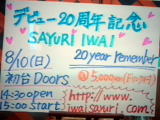 デビュー20周年記念
SAYURI IWAI
8/10(日) 20 year remember
初台Doors ¥5,000円(ドリンク付)
14:30 open http://www.
15:00 Start iwaisayuri.com